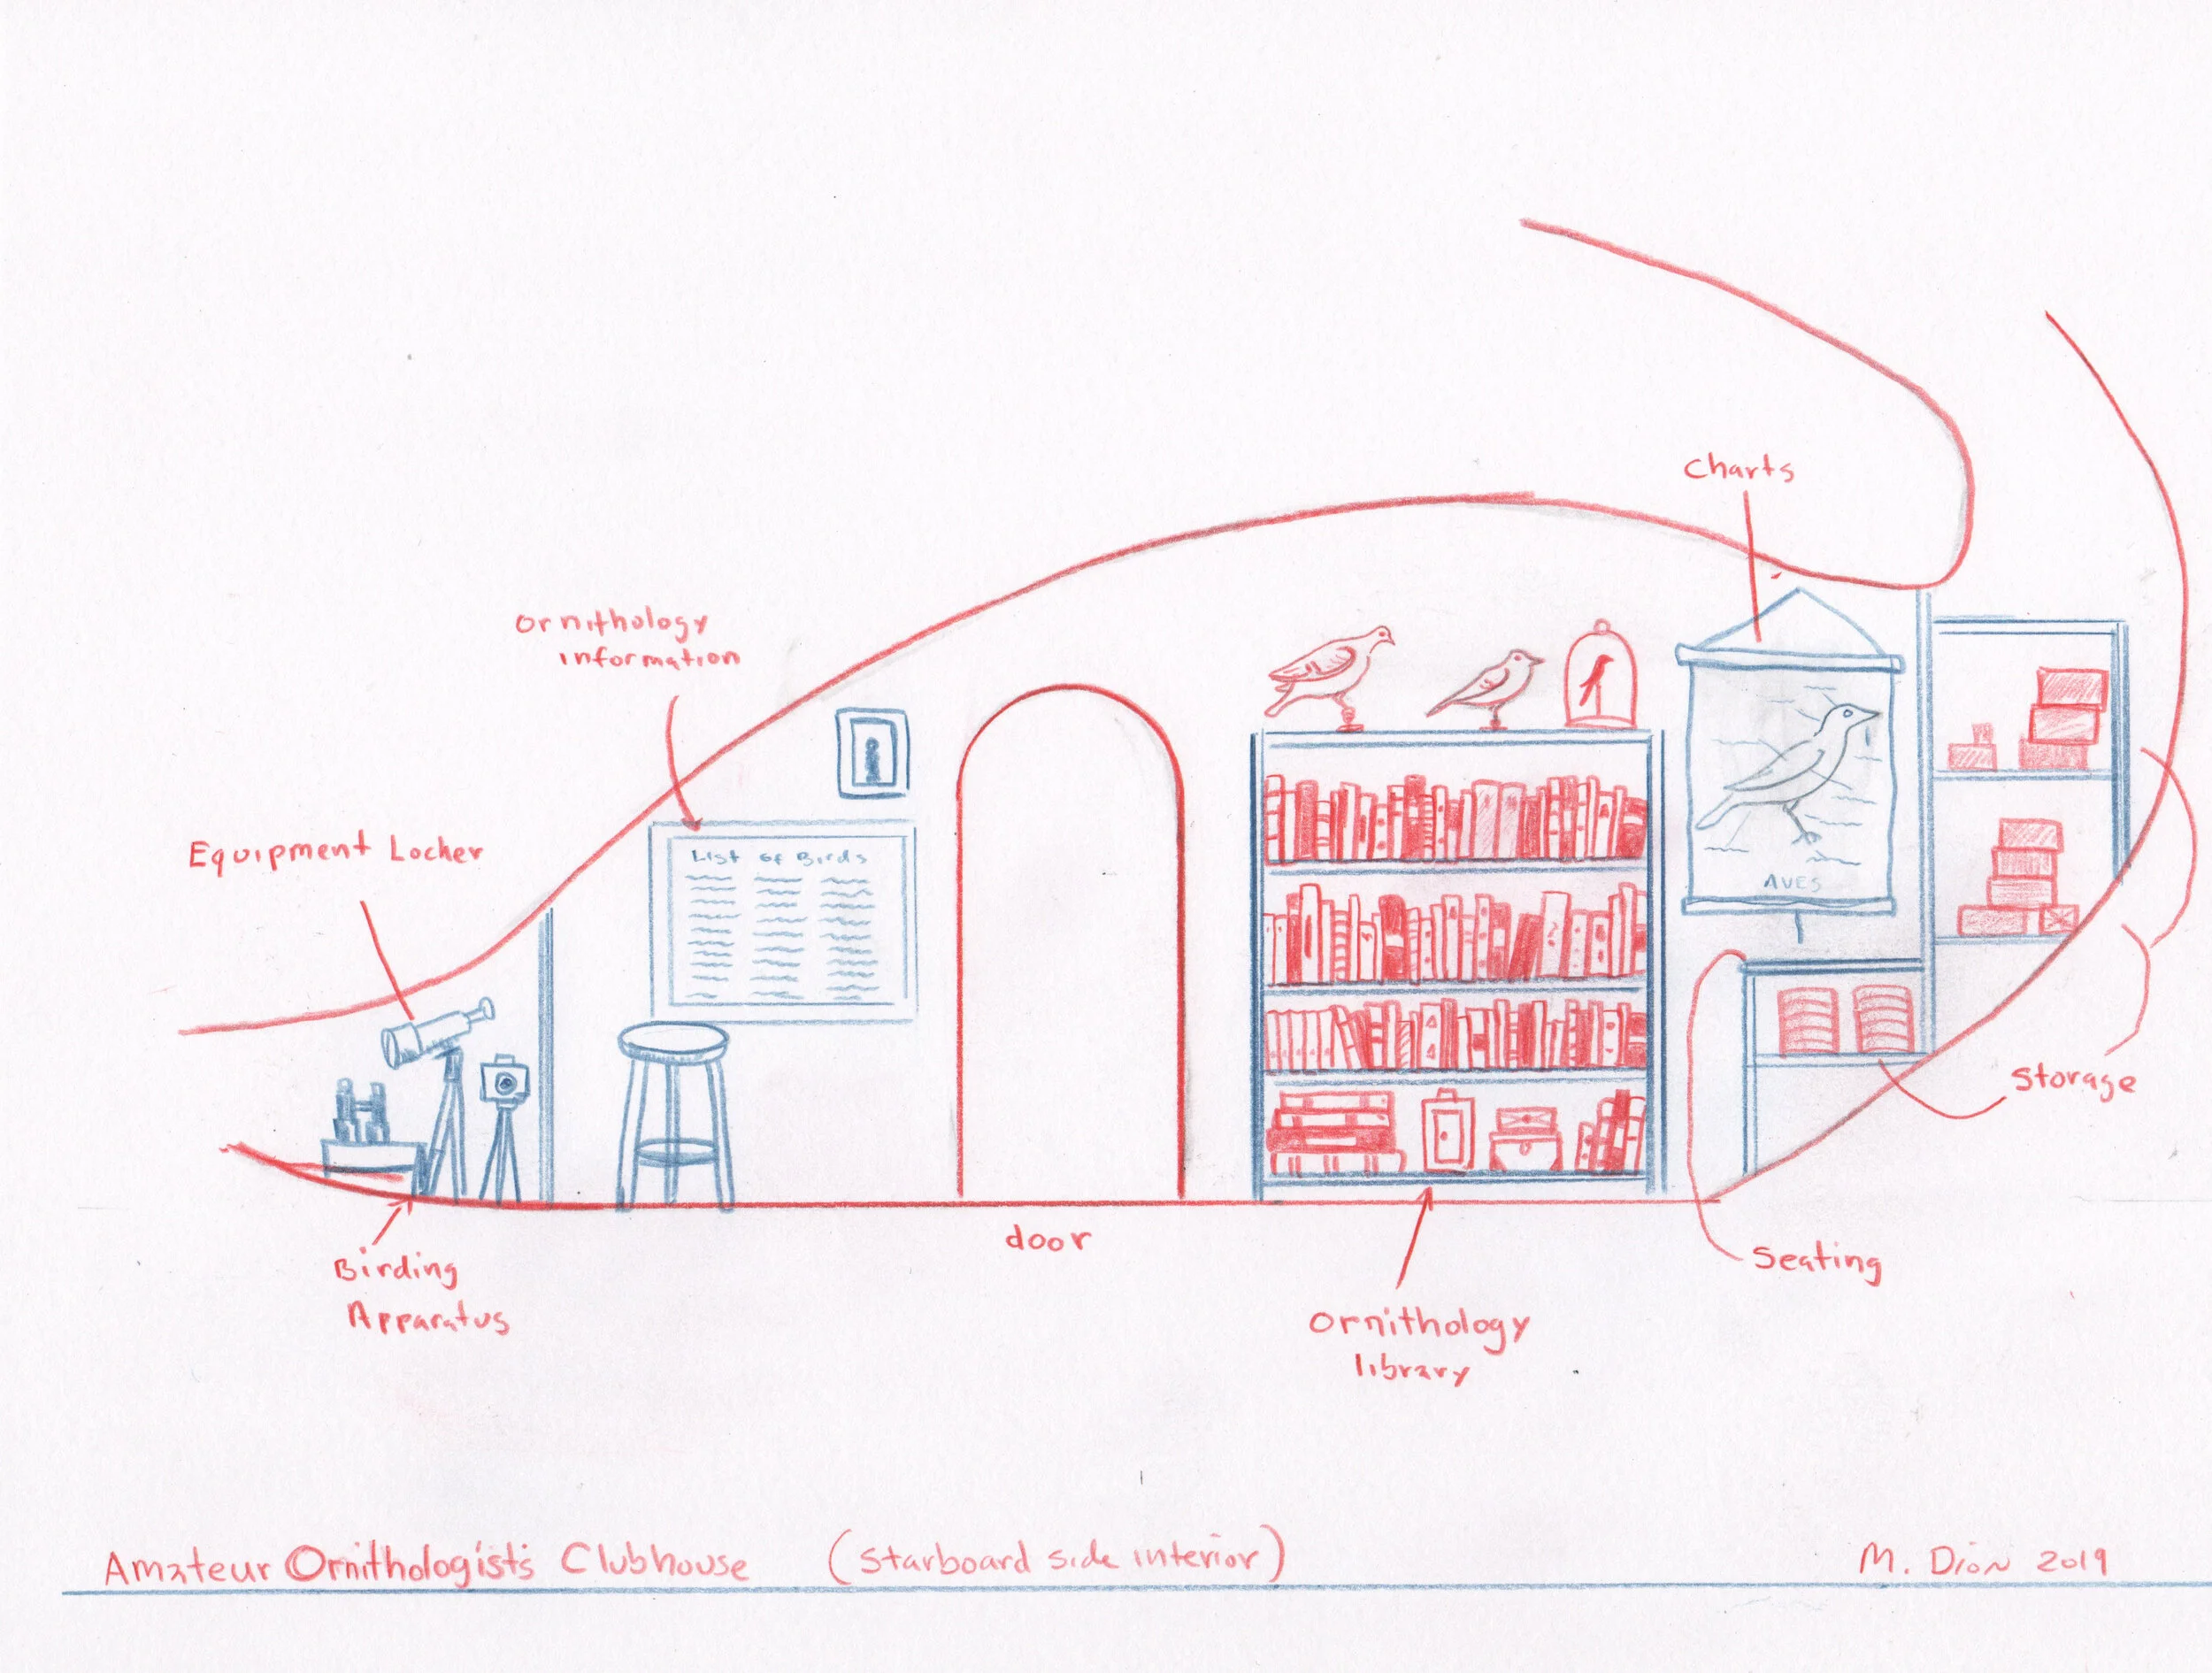 Charts
Ornithology
information
Equipment Locker
List of Birds
AVES
Storage
door
Seating
Birding
Apparatus
Ornithology
library
Amateur Ornithologists Clubhouse (Starboard side interior)
M. Dion 2019